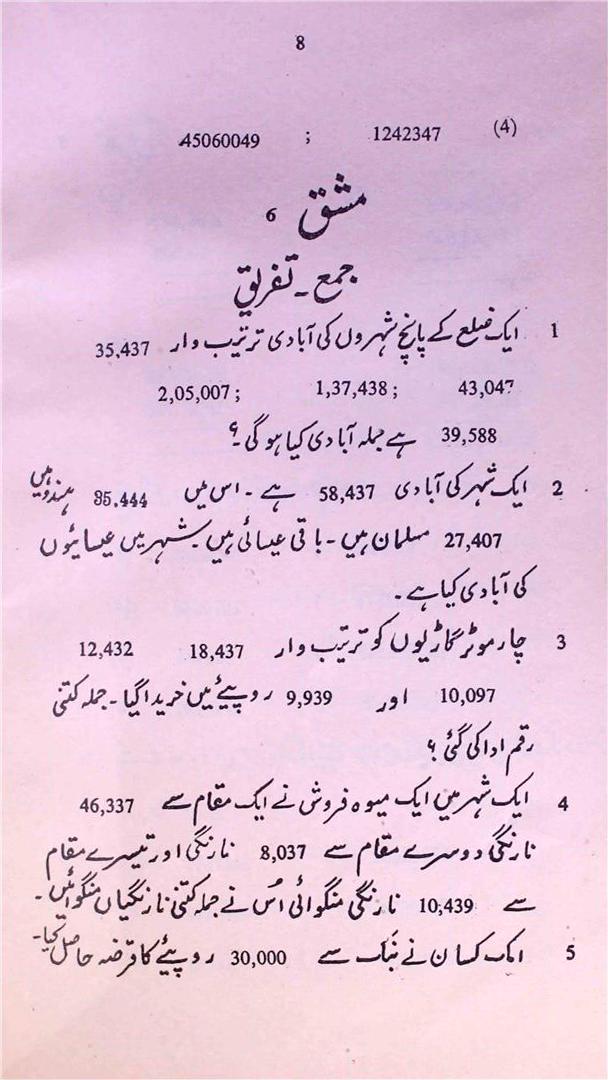 8
(4) 1242347 ; 45060049
مشق 6
جمع ۔ تفریق
1 ایک ضلع کے پانچ شہروں کی آبادی ترتیب وار 35,437
43,047 1,37,438; 2,05,007;
39,588 ہے جملہ آبادی کیا ہو گی۔؟
2 ایک شہر کی آبادی 58,437 ہے ۔ اس میں 85,444 ہندو ہیں
27,407 مسلمان ہیں ۔ باقی عیسائی ہیں۔ شہر میں عیسائیوں
کی آبادی کیا ہے ۔
3 چار موٹر گاڑیوں کو ترتیب وار 18,437 12,432
10,097 اور 9,939 روپیئے میں خریدا گیا ۔ جملہ کتنی
رقم ادا کی گئی ؟
4 ایک شہر میں ایک میوہ فروش نے ایک مقام سے 46,337
نارنگی دوسرے مقام سے 8,037 نارنگی اور تیسرے مقام
سے 10,439 نارنگی منگوائی اُس نے جملہ کتنی نارنگیاں منگوائیں ۔
5 ایک کسان نے بنک سے 30,000 روپیئے کا قرضہ حاصل کیا۔